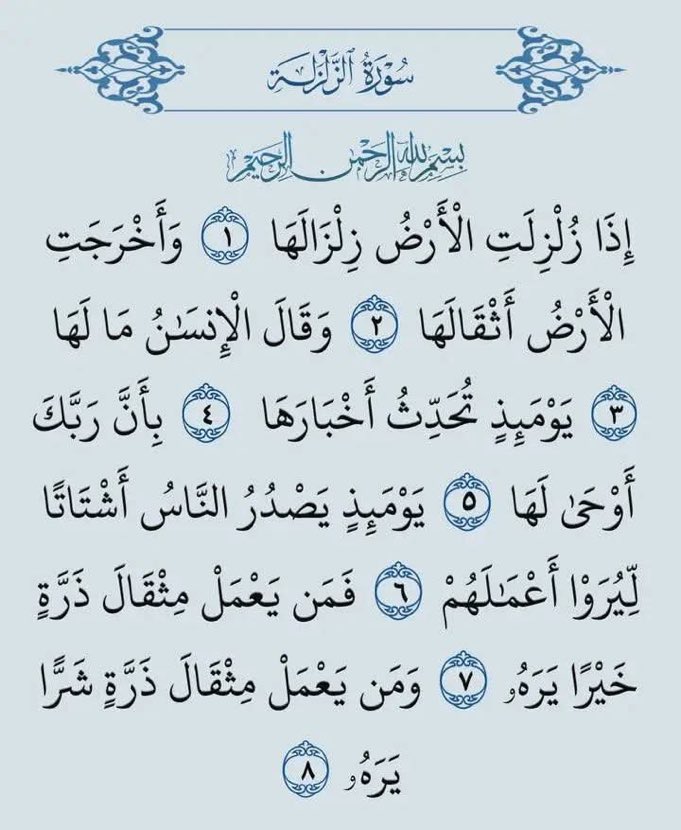 سُورَةُ ٱلزَّلْزَلَة
بِسْمِ اللهِ الرَّحْمٰنِ الرَّحِيْمِ
إِذَا زُلْزِلَتِ الْأَرْضُ زِلْزَالَهَا ١ وَأَخْرَجَتِ
الْأَرْضُ أَثْقَالَهَا ٢ وَقَالَ الْإِنسَـٰنُ مَا لَهَا
٣ يَوْمَئِذٍ تُحَدِّثُ أَخْبَارَهَا ٤ بِأَنَّ رَبَّكَ
أَوْحَىٰ لَهَا ٥ يَوْمَئِذٍ يَصْدُرُ النَّاسُ أَشْتَاتًا
لِّيُرَوْا أَعْمَـٰلَهُمْ ٦ فَمَن يَعْمَلْ مِثْقَالَ ذَرَّةٍ
خَيْرًا يَرَهُۥ ٧ وَمَن يَعْمَلْ مِثْقَالَ ذَرَّةٍ شَرًّا
يَرَهُۥ ٨